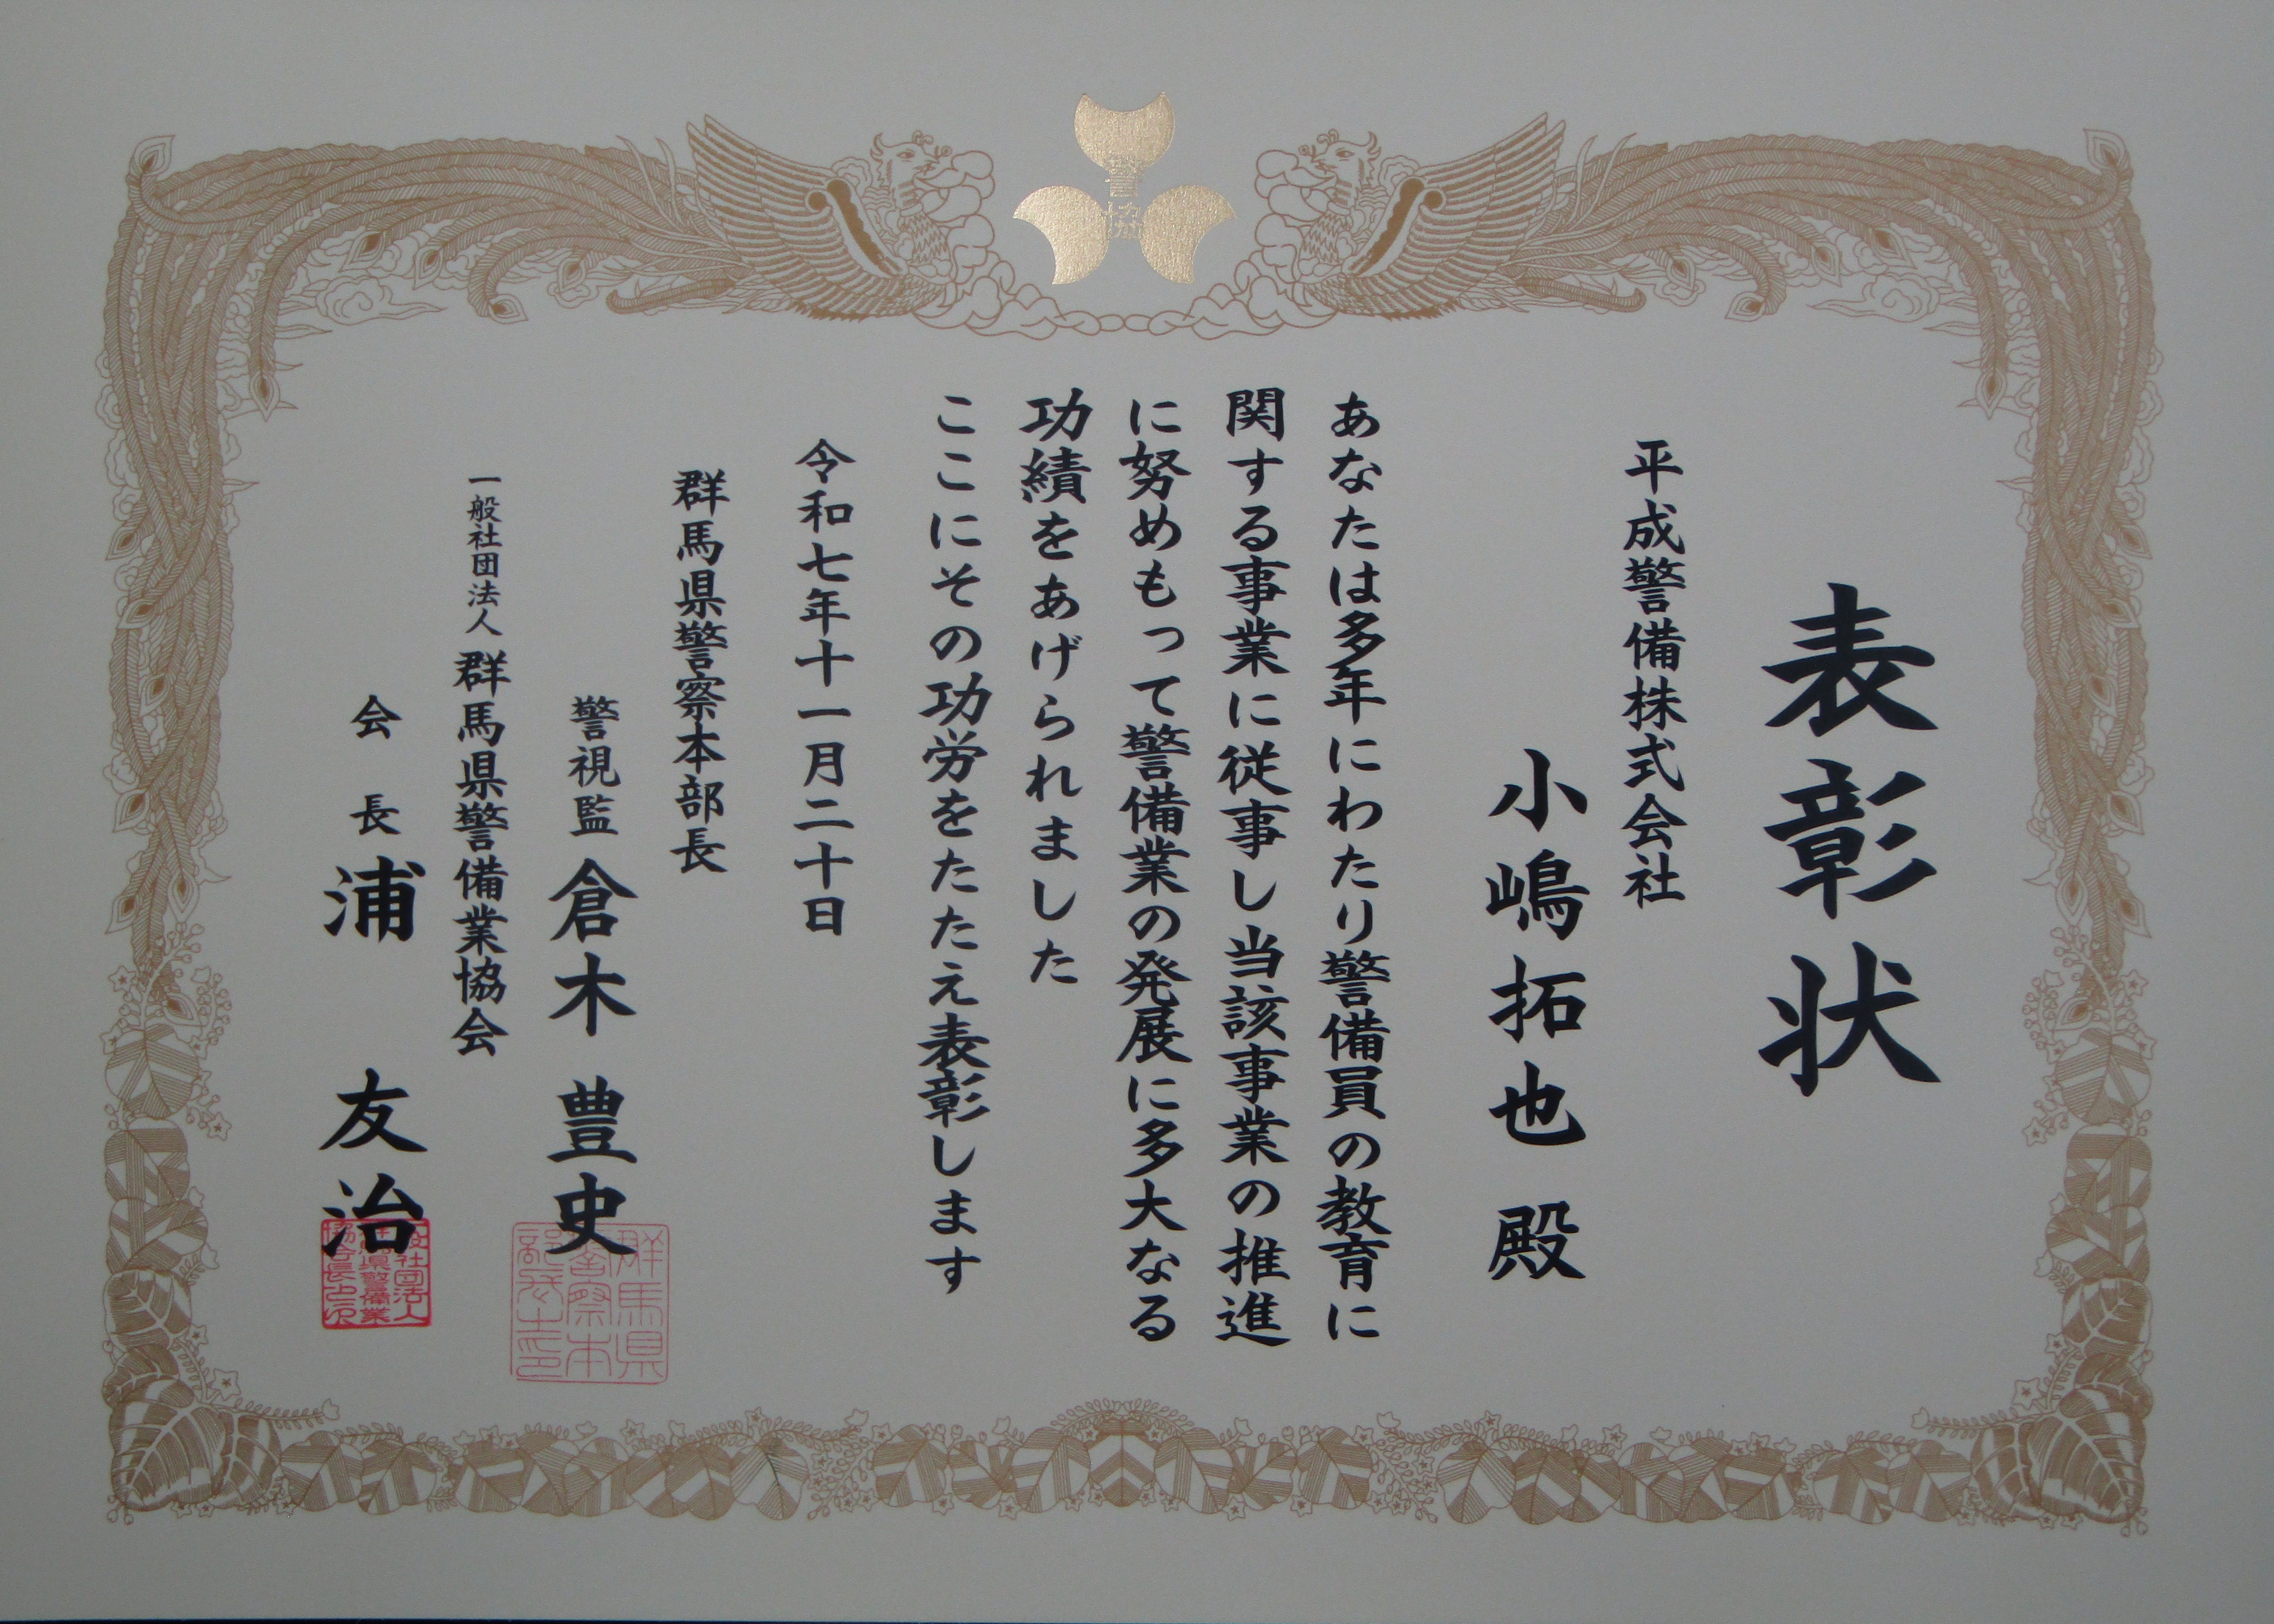 警協
表彰状
平成警備株式会社
小嶋拓也 殿
あなたは多年にわたり警備員の教育に
関する事業に従事し当該事業の推進
に努めもって警備業の発展に多大なる
功績をあげられました
ここにその功労をたたえ表彰します
令和七年十一月二十日
群馬県警察本部長
警視監 倉木豊史
群馬県警察本部長之印
一般社団法人 群馬県警備業協会
会長 浦 友治
一般社団法人群馬県警備業協会長之印